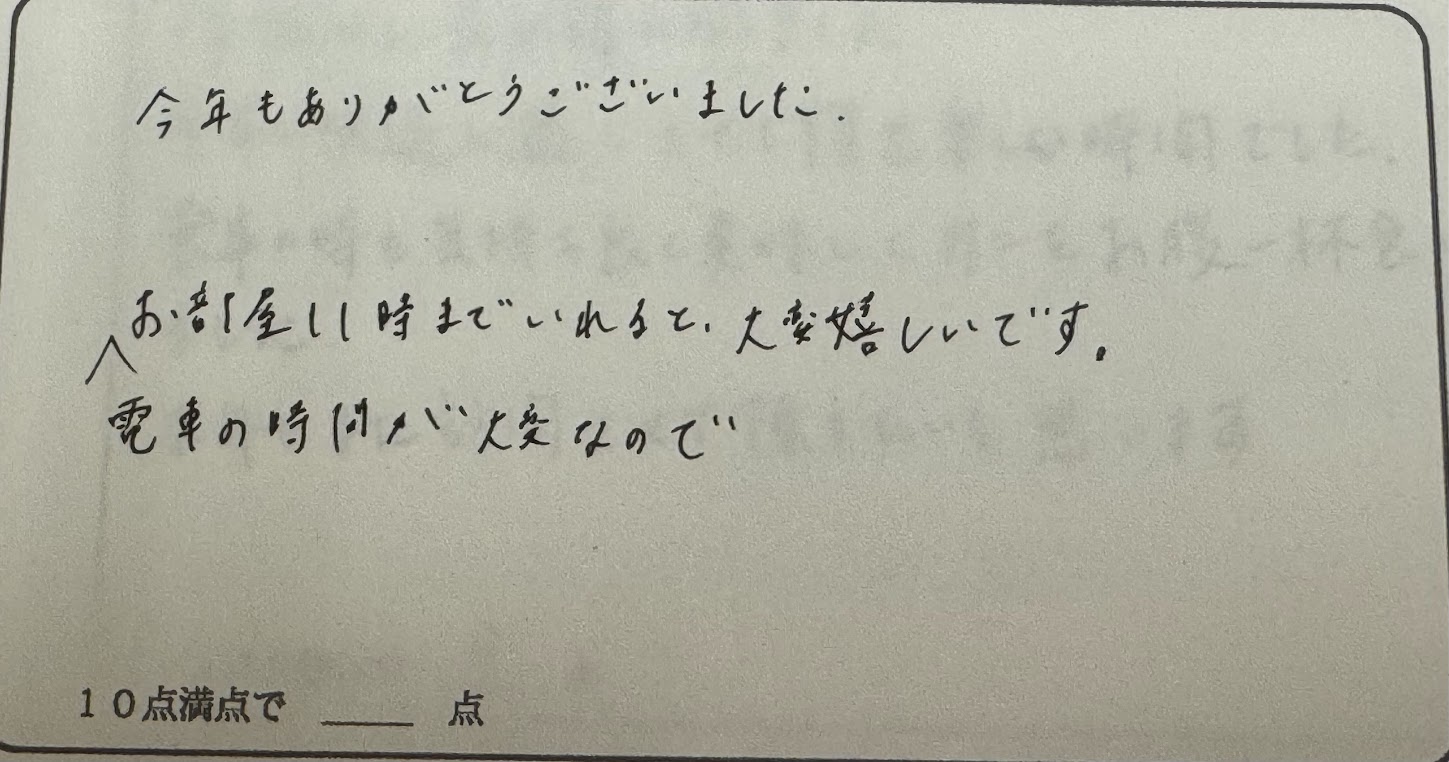 今年もありがとうございました.
お部屋11時までいれると、大変嬉しいです。
電車の時間が大変なので
10点満点で ____ 点